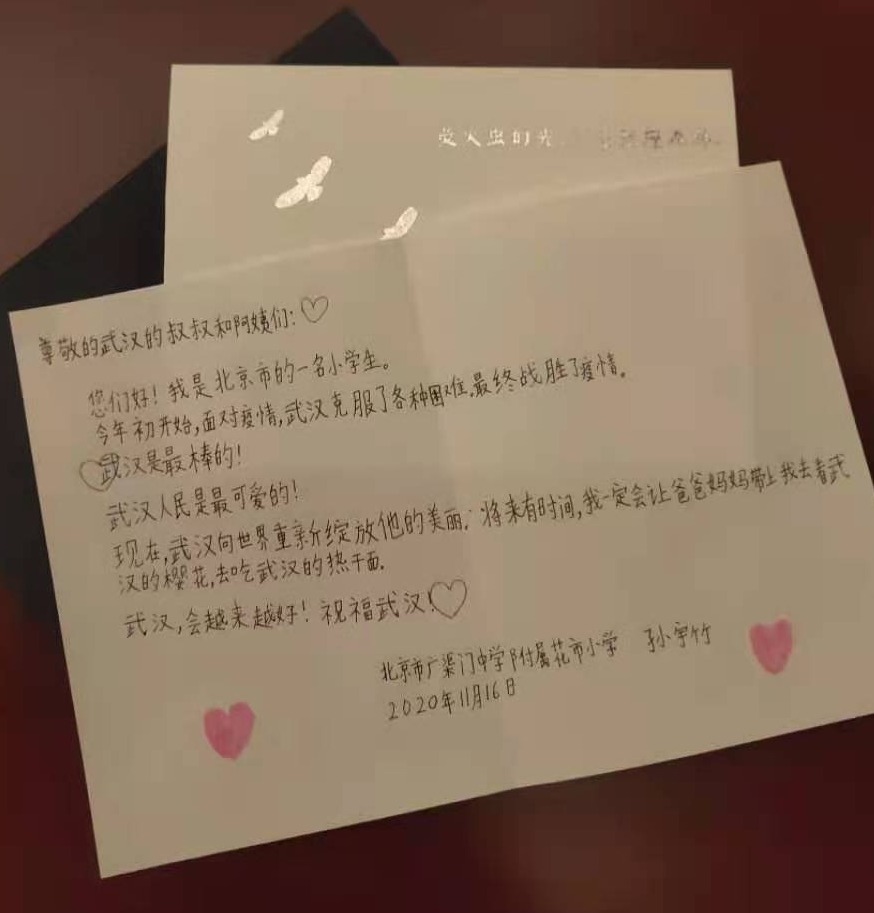 萤火虫的光
尊敬的武汉的叔叔和阿姨们:
您们好!我是北京市的一名小学生。
今年初开始,面对疫情,武汉克服了各种困难,最终战胜了疫情。
武汉是最棒的!
武汉人民是最可爱的!
现在,武汉向世界重新绽放他的美丽。将来有时间,我一定会让爸爸妈妈带上我去看武
汉的樱花,去吃武汉的热干面。
武汉,会越来越好!祝福武汉!
北京市广渠门中学附属花市小学 孙宇竹
2020年11月16日